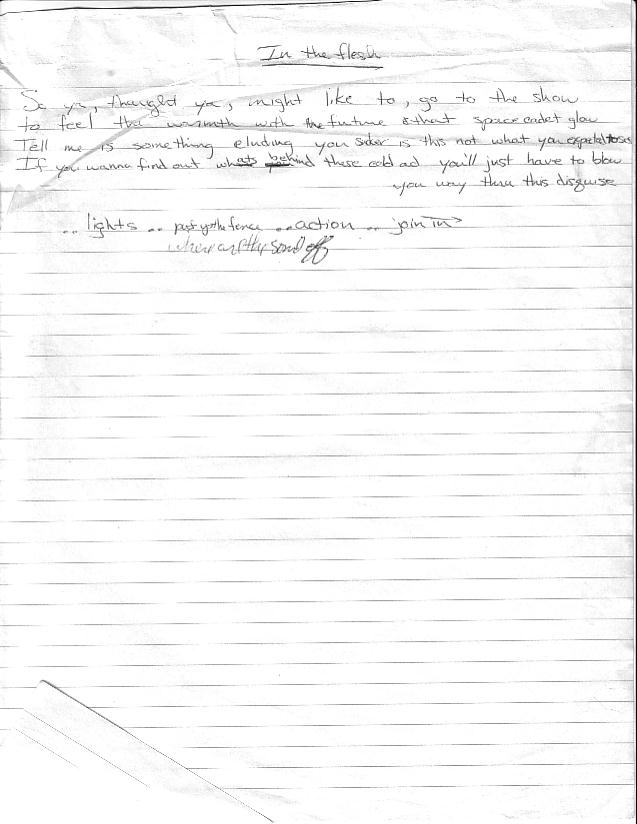 In the flesh
So ya, thought ya, might like to, go to the show
to feel the warmth with the future & that space cadet glow
Tell me is something eluding you sider is this not what you expected to see
If you wanna find out whats behind these cold ad you'll just have to blow
you way thru this disguise
.. lights .. .. action .. join in
the sound off